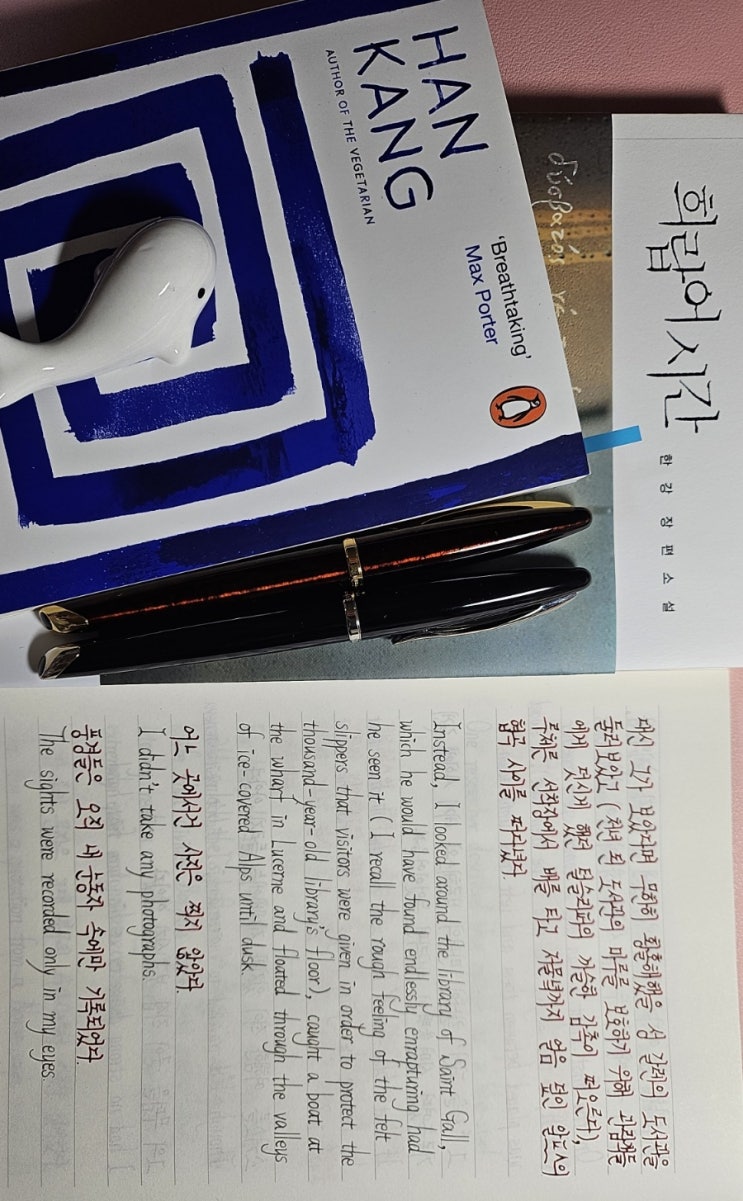 HAN
KANG
AUTHOR OF THE VEGETARIAN
'Breathtaking'
Max Porter
희랍어 시간
한강 장편소설
대신 그가 보았다면 무한히 황홀해했을 성 갈렌의 도서관을
둘러보았고 (천년 된 도서관의 마루를 보호하기 위해 관람객들
에게 덧신게 했던 털슬리퍼의 까슬한 감촉이 떠오른다),
루체른 선착장에서 배를 타고 저물녘까지 얼음 덮인 알프스의
협곡 사이를 떠다녔다.
Instead, I looked around the library of Saint Gall,
which he would have found endlessly enrapturing had
he seen it (I recall the rough feeling of the felt
slippers that visitors were given in order to protect the
thousand-year-old library's floor), caught a boat at
the wharf in Lucerne and floated through the valleys
of ice-covered Alps until dusk.
어느 곳에서건 사진은 찍지 않았다.
I didn't take any photographs.
풍경들은 오직 내 눈동자 속에만 기록되었다.
The sights were recorded only in my eyes.